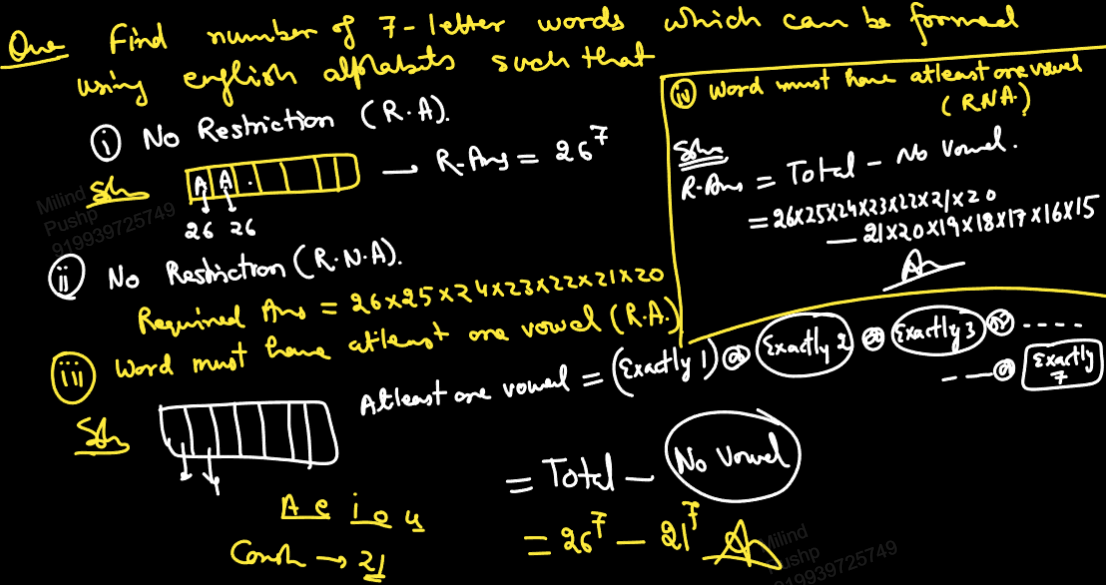 Que Find number of 7-letter words which can be formed
using english alphabets such that
(i) No Restriction (R.A).
Soln A A . → R-Ans = 26^7
26 26
Milind
Pushp
919939725749
(ii) No Restriction (R.N.A).
Required Ans = 26×25×24×23×22×21×20
(iii) Word must have atleast one vowel (R.A.)
Soln Atleast one vowel = (Exactly 1) or (Exactly 2) or (Exactly 3) or ----
--- or Exactly 7
= Total - No Vowel
A e i o u
Consn → 21
= 26^7 - 21^7 An
(iv) Word must have atleast one vowel
(RNA.)
Soln
R-Ans = Total - No Vowel.
= 26×25×24×23×22×21×20
- 21×20×19×18×17×16×15
An
Milind
Pushp
919939725749